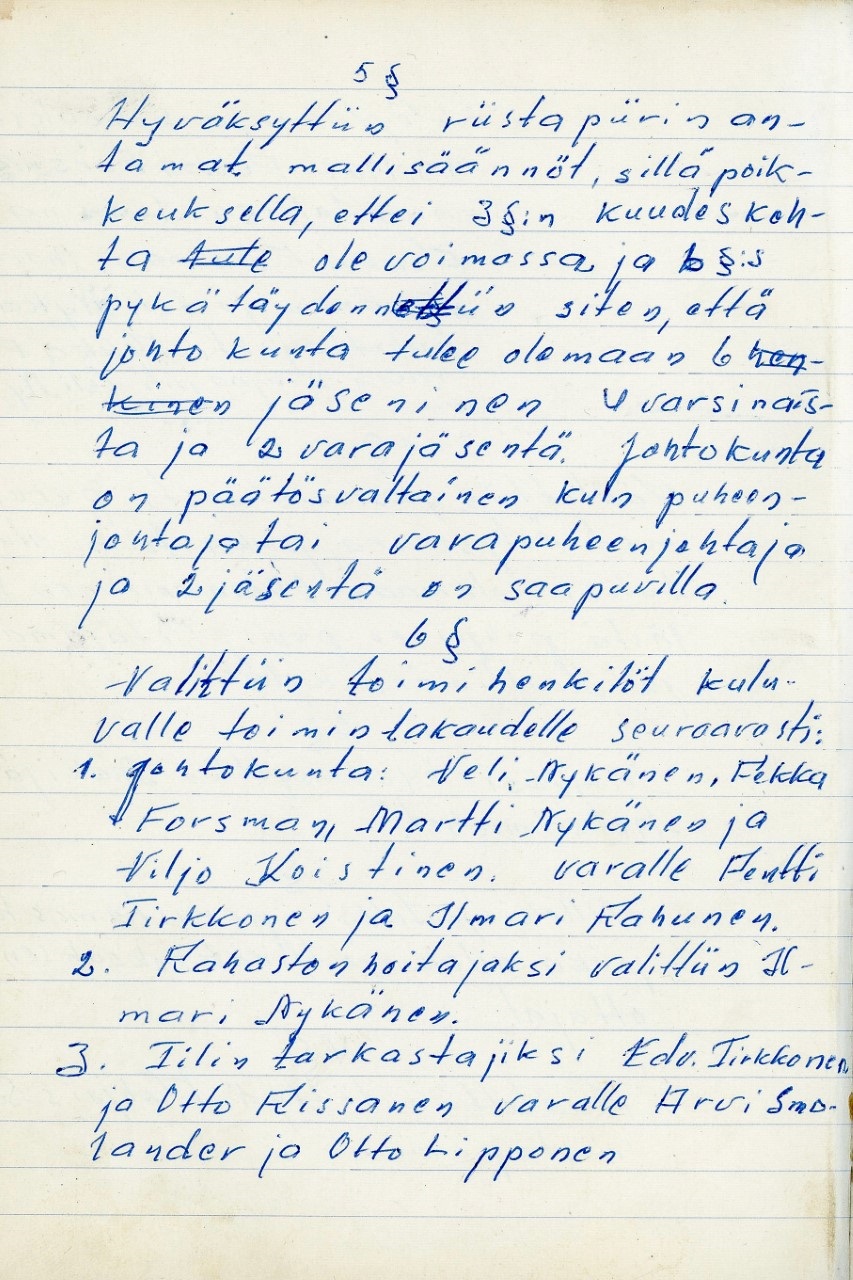 5 §
Hyväksyttiin riistapiirin an-
tamat mallisäännöt, sillä poik-
keuksella, ettei 3§:n kuudes koh-
ta tule ole voimassa ja 6 §:s
pykä täydennettiin siten, että
johtokunta tulee olemaan 6 hen-
kinen jäseninen 4 varsinais-
ta ja 2 varajäsentä. Johtokunta
on päätösvaltainen kuin puheen-
johtaja tai varapuheenjohtaja
ja 2 jäsentä on saapuvilla.
6 §
Valittiin toimihenkilöt kulu-
valle toimintakaudelle seuraavasti:
1. Johtokunta: Veli Nykänen, Pekka
Forsman, Martti Nykänen ja
Viljo Koistinen. varalle Pentti
Tirkkonen ja Ilmari Rahunen.
2. Rahastonhoitajaksi valittiin Il-
mari Nykänen.
3. Tilintarkastajiksi Edv. Tirkkonen
ja Otto Rissanen varalle Arvi Smo-
lander ja Otto Lipponen